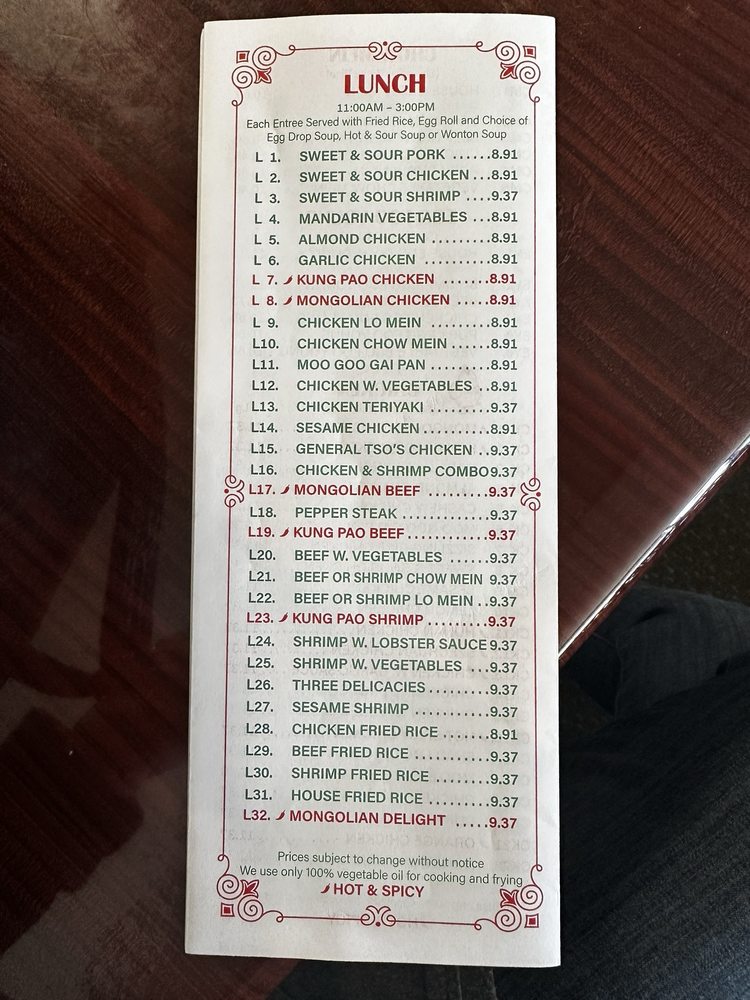 LUNCH
11:00AM – 3:00PM
Each Entree Served with Fried Rice, Egg Roll and Choice of
Egg Drop Soup, Hot & Sour Soup or Wonton Soup
L 1. SWEET & SOUR PORK ......8.91
L 2. SWEET & SOUR CHICKEN ...8.91
L 3. SWEET & SOUR SHRIMP ....9.37
L 4. MANDARIN VEGETABLES ...8.91
L 5. ALMOND CHICKEN ........8.91
L 6. GARLIC CHICKEN ..........8.91
L 7. KUNG PAO CHICKEN .......8.91
L 8. MONGOLIAN CHICKEN .....8.91
L 9. CHICKEN LO MEIN .........8.91
L10. CHICKEN CHOW MEIN ......8.91
L11. MOO GOO GAI PAN .........8.91
L12. CHICKEN W. VEGETABLES ..8.91
L13. CHICKEN TERIYAKI .........9.37
L14. SESAME CHICKEN ..........8.91
L15. GENERAL TSO'S CHICKEN ..9.37
L16. CHICKEN & SHRIMP COMBO9.37
L17. MONGOLIAN BEEF .........9.37
L18. PEPPER STEAK .............9.37
L19. KUNG PAO BEEF............9.37
L20. BEEF W. VEGETABLES ......9.37
L21. BEEF OR SHRIMP CHOW MEIN 9.37
L22. BEEF OR SHRIMP LO MEIN ..9.37
L23. KUNG PAO SHRIMP .........9.37
L24. SHRIMP W. LOBSTER SAUCE 9.37
L25. SHRIMP W. VEGETABLES ...9.37
L26. THREE DELICACIES .........9.37
L27. SESAME SHRIMP ............9.37
L28. CHICKEN FRIED RICE .......8.91
L29. BEEF FRIED RICE ............9.37
L30. SHRIMP FRIED RICE .........9.37
L31. HOUSE FRIED RICE ..........9.37
L32. MONGOLIAN DELIGHT .....9.37
Prices subject to change without notice
We use only 100% vegetable oil for cooking and frying
HOT & SPICY